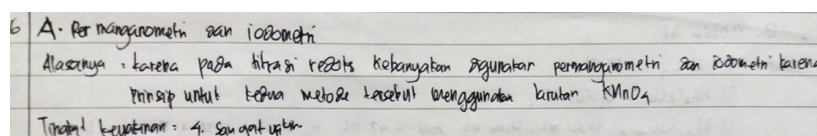 6 A. Permanganometri dan iodometri
Alasannya : karena pada titrasi redoks kebanyakan digunakan permanganometri dan iodometri karena
Prinsip untuk kedua metode tersebut menggunakan larutan KMnO4
Tingkat keyakinan : 4. Sangat yakin